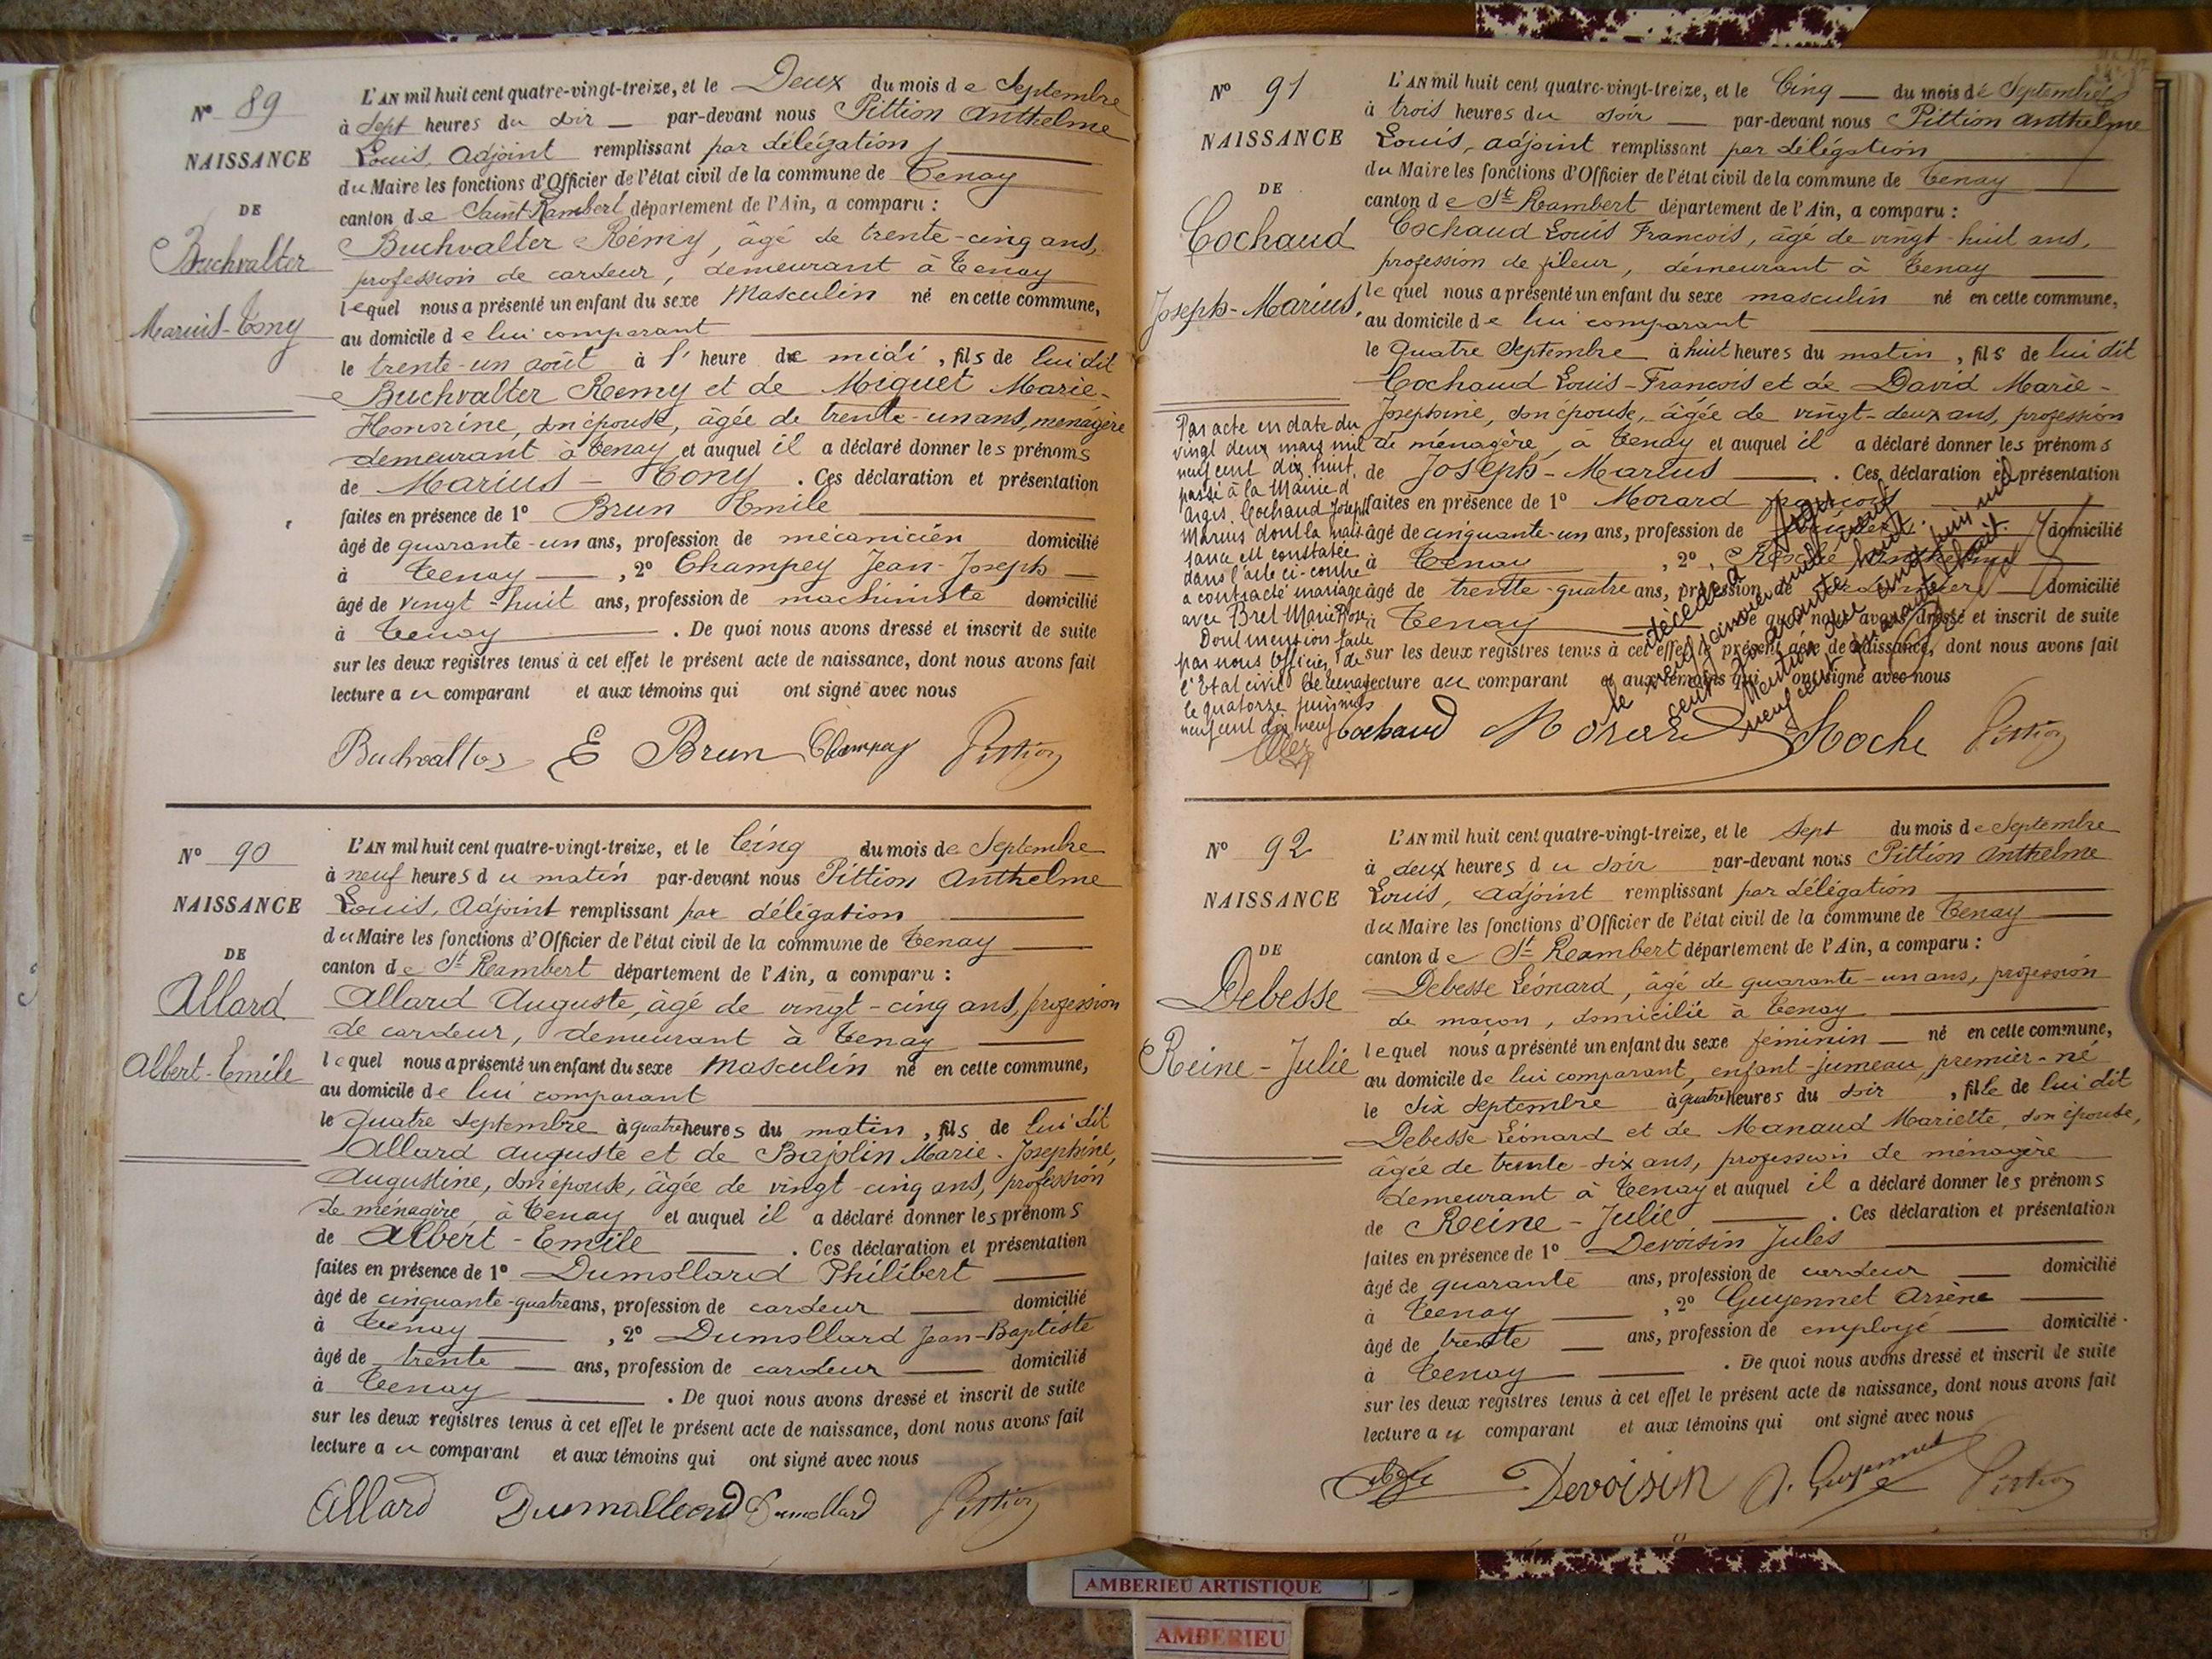 Nº 89
NAISSANCE
DE
Buchvalter
Marius-Tony
L'AN mil huit cent quatre-vingt-treize, et le Deux du mois de Septembre
à Sept heures du soir — par-devant nous Pittion Anthelme
Louis, Adjoint remplissant par délégation
du Maire les fonctions d'Officier de l'état civil de la commune de Tenay
canton de Saint-Rambert département de l'Ain, a comparu :
Buchvalter Rémy, âgé de trente-cinq ans,
profession de cardeur, demeurant à Tenay
lequel nous a présenté un enfant du sexe Masculin né en cette commune,
au domicile de lui comparant
le trente-un août à l' heure de midi, fils de lui dit
Buchvalter Remy et de Miguet Marie-
Honorine, son épouse, âgée de trente-un ans, ménagère
demeurant à Tenay et auquel il a déclaré donner les prénoms
de Marius - Tony . Ces déclaration et présentation
faites en présence de 1º Brun Emile
âgé de quarante-un ans, profession de mécanicien domicilié
à Tenay —, 2º Champey Jean-Joseph —
âgé de vingt-huit ans, profession de machiniste domicilié
à Tenay — . De quoi nous avons dressé et inscrit de suite
sur les deux registres tenus à cet effet le présent acte de naissance, dont nous avons fait
lecture au comparant et aux témoins qui ont signé avec nous
Buchvalter E Brun Champey Pittion
Nº 90
NAISSANCE
DE
Allard
Albert-Emile
L'AN mil huit cent quatre-vingt-treize, et le Cinq du mois de Septembre
à neuf heures du matin par-devant nous Pittion Anthelme
Louis, Adjoint remplissant par délégation
du Maire les fonctions d'Officier de l'état civil de la commune de Tenay
canton de St Rambert département de l'Ain, a comparu :
Allard Auguste, âgé de vingt-cinq ans, profession
de cardeur, demeurant à Tenay
lequel nous a présenté un enfant du sexe Masculin né en cette commune,
au domicile de lui comparant
le quatre septembre à quatre heures du matin, fils de lui dit
Allard Auguste et de Bajolin Marie-Josephine,
Augustine, son épouse, âgée de vingt-cinq ans, profession
de ménagère à Tenay et auquel il a déclaré donner les prénoms
de Albert-Emile — . Ces déclaration et présentation
faites en présence de 1º Dumollard Philibert
âgé de cinquante-quatre ans, profession de cardeur — domicilié
à Tenay —, 2º Dumollard Jean-Baptiste
âgé de trente — ans, profession de cardeur — domicilié
à Tenay — . De quoi nous avons dressé et inscrit de suite
sur les deux registres tenus à cet effet le présent acte de naissance, dont nous avons fait
lecture au comparant et aux témoins qui ont signé avec nous
Allard Dumollard Dumollard Pittion
Nº 91
NAISSANCE
DE
Cochaud
Joseph-Marius,
L'AN mil huit cent quatre-vingt-treize, et le Cinq — du mois de Septembre
à trois heures du soir — par-devant nous Pittion Anthelme
Louis, adjoint remplissant par délégation
du Maire les fonctions d'Officier de l'état civil de la commune de Tenay
canton de St Rambert département de l'Ain, a comparu :
Cochaud Louis François, âgé de vingt-huit ans,
profession de fileur, démeurant à Tenay
lequel nous a présenté un enfant du sexe masculin né en cette commune,
au domicile de lui comparant
le quatre Septembre à huit heures du matin, fils de lui dit
Cochaud Louis-François et de David Marie-
Josephine, son épouse, âgée de vingt-deux ans, profession
de ménagère, à Tenay et auquel il a déclaré donner les prénoms
de Joseph-Marius — . Ces déclaration et présentation
faites en présence de 1º Morard françois
âgé de cinquante-un ans, profession de domicilié
à Tenay, 2º Roche Anthelme
âgé de trente-quatre ans, profession de domicilié
à Tenay — De quoi nous avons dressé et inscrit de suite
sur les deux registres tenus à cet effet le présent acte de naissance, dont nous avons fait
lecture au comparant et aux témoins qui ont signé avec nous
Cochaud Morard Roche Pittion
Par acte en date du
vingt deux mars mil
neuf cent dix huit,
passé à la Mairie d'
Argis, Cochaud Joseph
Marius dont la nais-
sance est constatée
dans l'acte ci-contre
a contracté mariage
avec Bret Marie Rose
Dont mention faite
par nous Officier de
l'Etat civil de Tenay
le quatorze juin mil
neuf cent dix neuf
décédé à
le neuf janvier mil neuf
cent quarante huit
Mention du cinq juin mil
neuf cent quarante huit
Nº 92
NAISSANCE
DE
Debesse
Reine-Julie
L'AN mil huit cent quatre-vingt-treize, et le Sept du mois de Septembre
à deux heures du soir par-devant nous Pittion Anthelme
Louis, adjoint remplissant par délégation
du Maire les fonctions d'Officier de l'état civil de la commune de Tenay
canton de St Rambert département de l'Ain, a comparu :
Debesse Léonard, âgé de quarante-un ans, profession
de maçon, domicilié à Tenay
lequel nous a présenté un enfant du sexe féminin — né en cette commune,
au domicile de lui comparant, enfant-jumeau, premier-né
le six septembre à quatre heures du soir, fille de lui dit
Debesse Léonard et de Manaud Mariette, son épouse,
âgée de trente-six ans, profession de ménagère
demeurant à Tenay et auquel il a déclaré donner les prénoms
de Reine-Julie — . Ces déclaration et présentation
faites en présence de 1º Devoisin Jules
âgé de quarante ans, profession de cardeur — domicilié
à Tenay —, 2º Guyennet Arsène
âgé de trente — ans, profession de employé — domicilié
à Tenay — . De quoi nous avons dressé et inscrit de suite
sur les deux registres tenus à cet effet le présent acte de naissance, dont nous avons fait
lecture au comparant et aux témoins qui ont signé avec nous
Devoisin A. Guyennet Pittion
AMBERIEU ARTISTIQUE
AMBERIEU